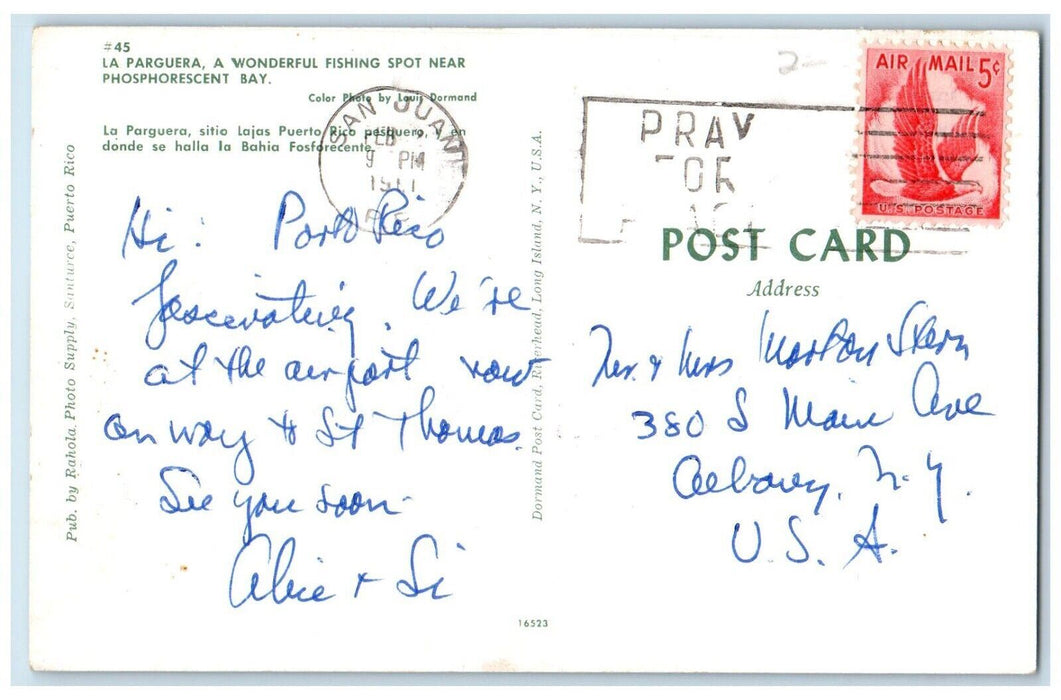 #45
LA PARGUERA, A WONDERFUL FISHING SPOT NEAR
PHOSPHORESCENT BAY.
Color Photo by Louis Dormand
La Parguera, sitio Lajas Puerto Rico pesquero, y en
donde se halla la Bahia Fosforecente.
Pub. by Rahola Photo Supply, Santurce, Puerto Rico
SAN JUAN
FEB
9 PM
P.R.
Hi: Porto Rico
fascinating. We're
at the airport now
on way to St Thomas.
See you soon-
Alice + Si
Dormand Post Card, Riverhead, Long Island, N. Y., U.S.A.
16523
2-
PRAY
FOR
AIR MAIL 5¢
U.S. POSTAGE
POST CARD
Address
Mr. & Mrs Morton Stern
380 S Main Ave
Albany, N.Y.
U.S.A.